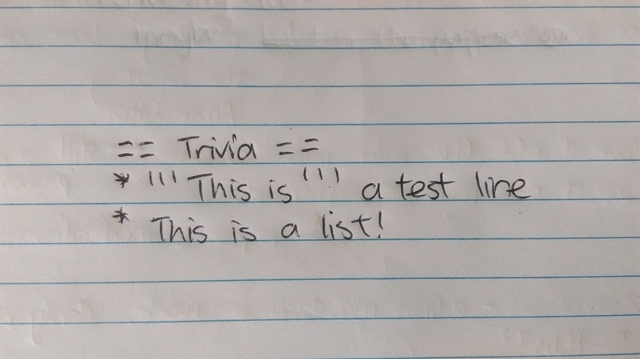 == Trivia ==
* '''This is''' a test line
* This is a list!